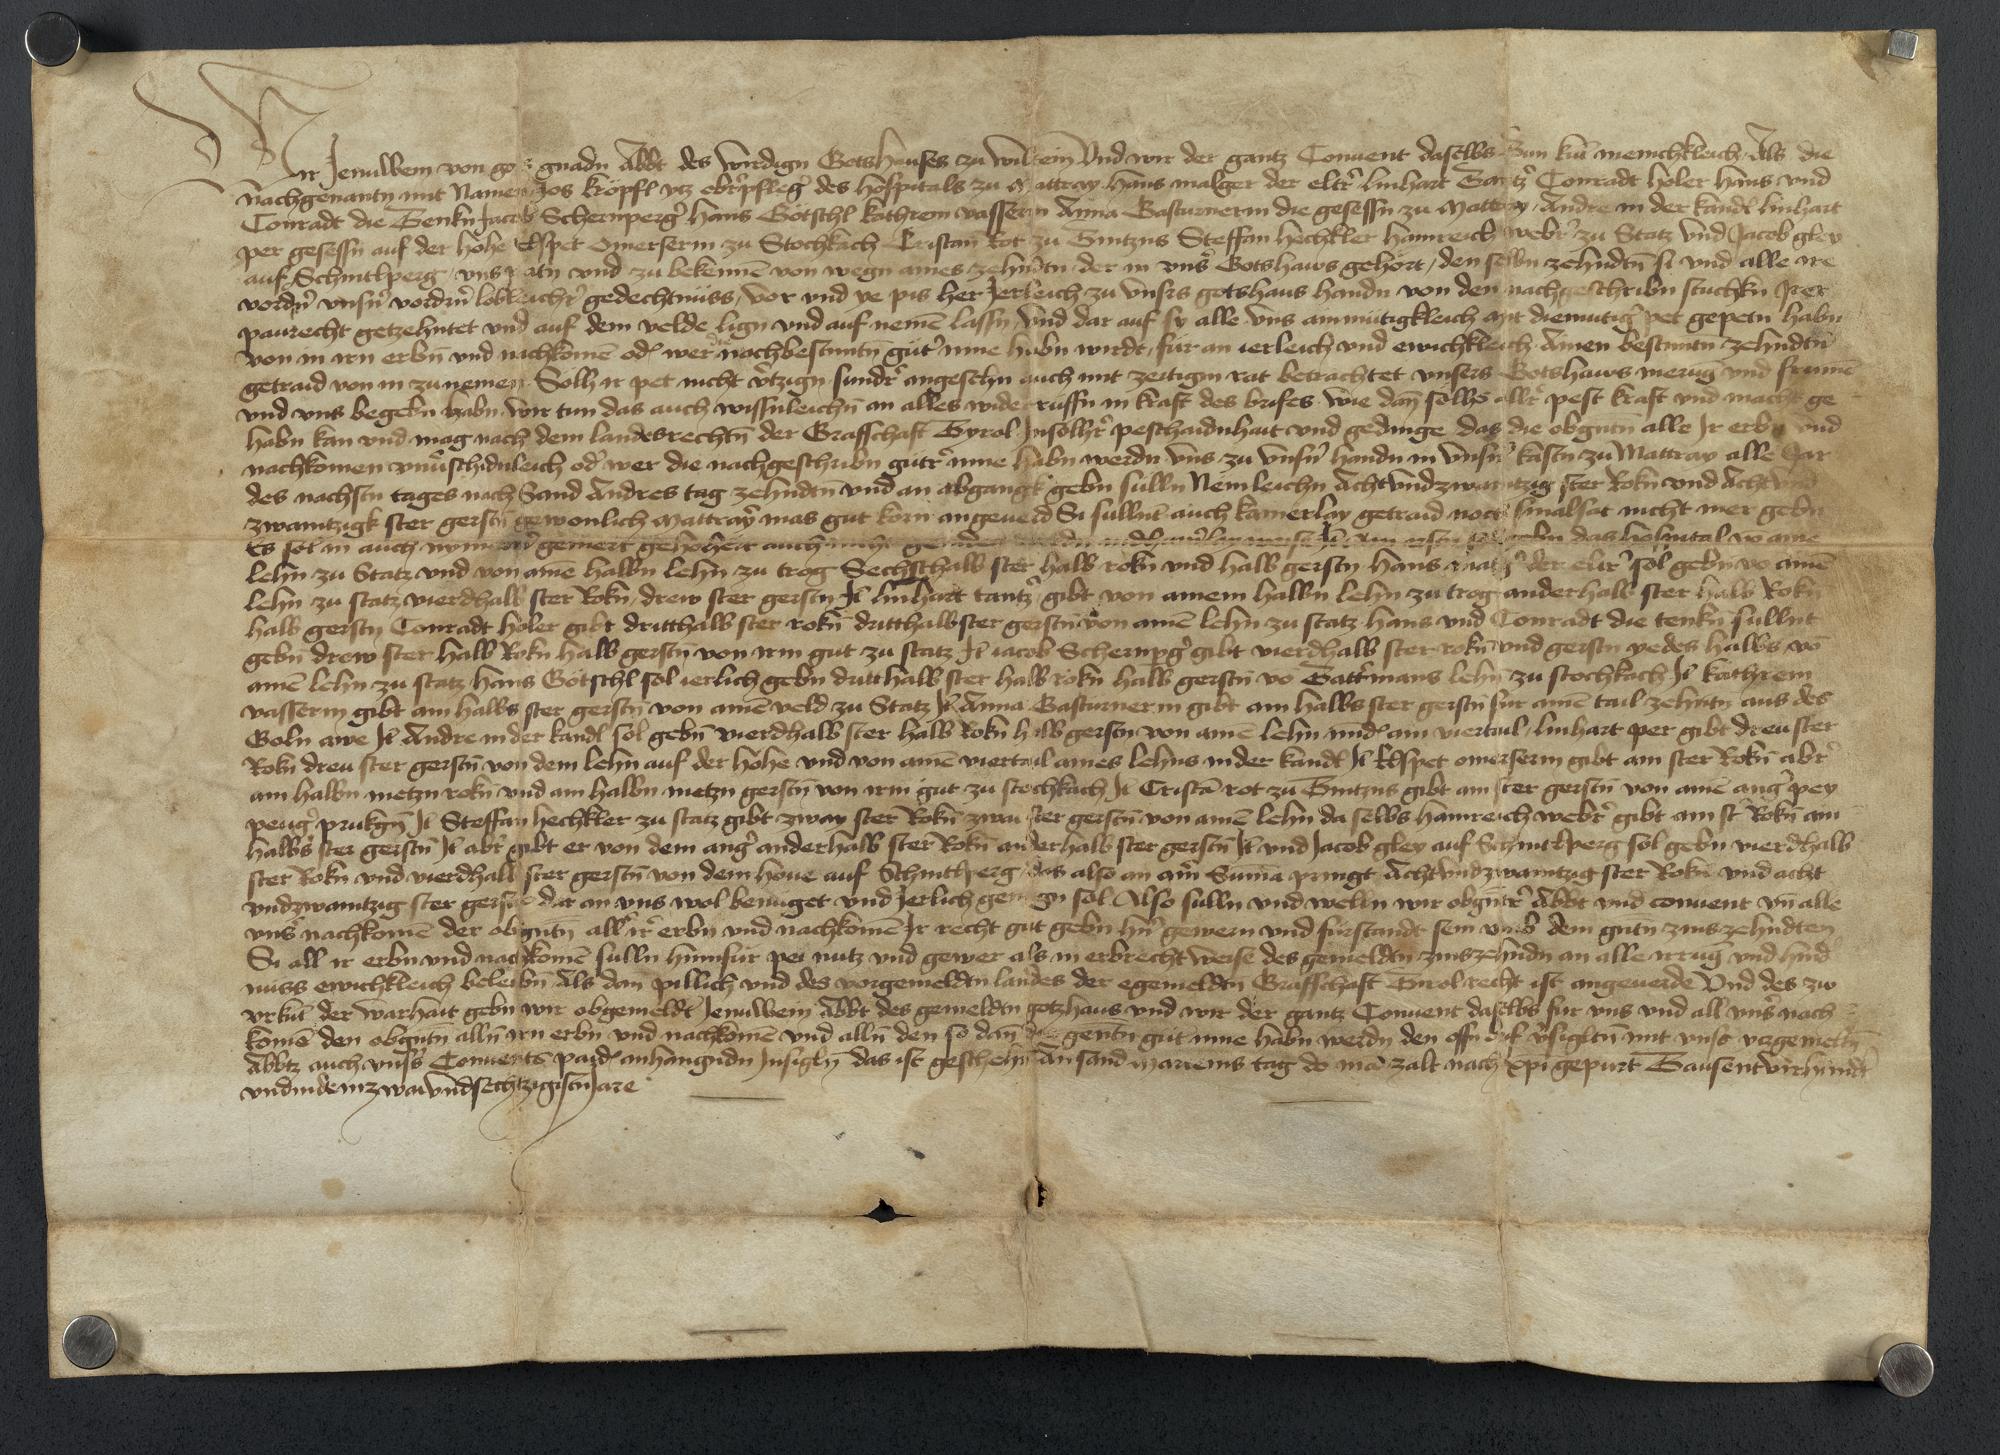 Wir Jenwein von gots gnadn Abbt des wirdign Gotshauses zu Wiltein Vnd wir der gantz Conuent daselbs Tun kũt menichkleich Als die
nachgenantn mit Namen Jos kröpfl ytz obr̃pfleg̃ des hospitals zu Mattray Hans malger der eltr̃ linhart Tantzr̃ Conradt holer Hans vnd
Conradt die Tenkn Jacob Schernperg̃ Hans Götschl kathrein vasserin Anna Gasturnerin die gesessn zu Mattray Andre in der kandl linhart
per gesessn auf der höhe Elspet omerserin zu Stochkach Cristan Rot zu Tintzns Steffan hechkler hainreich webr̃ zu Statz vnd Jacob gley
auf Schmtlperg vns patn vnd zu bekennẽ von wegn aines zehndtn der in vnsr̃ Gotshaws gehort den selbn zehndtn̄ si vnd alle ire
vordr̃n vnsrñ vordrñ lobleichr̃ gedechtnüss vor vnd ye pis her Jerleich zu vnsrs gotshaus handn von den nachgeschribn stuchkn Jrer
paurecht getzehntet vnd auf dem velde lign vnd auf nemẽ lassn Vnd dar auf sy alle vns ainmütigkleich mit diemütig̃ pet gepetn habn
von in irn erbn̄ vnd nachkomẽ odr̃ wer die nachbestimtn̄ gütr̃ inne habn wirdt für an ierleich vnd ewichkleich Ainen bestimtn zehndtn̄
getraid von in zu nemen Solh ir pet nicht vr̃tzign sundr̃ angesehn auch mit zeitign rat betrachtet vnsers Gotshaws merug̃ vnd frumẽ
vnd vns begebn habn wir tun das auch wissnleichn̄ an alles widerruffn in kraft des brifes wie dañ sölhs allr̃ pest kraft vnd macht ge
habn kan vnd mag nach dem landesrechtn̄ der Grafschaft Tyrol Jnsölhr̃ peschaidnhait vnd gedinge das die obgntn̄ alle Jr erbn vnd
nachkomen vnuschidnleich odr̃ wer die nachgeschribn gütr̃ inne habn werdn vns zu vnsrñ handn in vnsrñ kastn zu Mattray alle Jar
des nachstn tages nach Sand Andres tag zehndtn̄ vnd an abgangk gebn sülln Nemleichn Achtvndzwaintzig ster Rokn̄ vnd Achtvnd
zwaintzigk ster gerstn̄ gewonlich Mattrayr̃ mas gut korn angeuerd Si süllnt auch kainerlay getraid noch smalsat nicht mer gebn
Es sol in auch gemert gehöhert auch gebn das hospital vo aine
lehn zu Statz vnd von aine halbn lehn zu trog Sechsthalb ster halb rokn vnd halb gerstn Hans der eltr̃ sol gebn vo ainẽ
lehn zu statz vierdhalb ster Rokn drew ster gerstn Jt̃ linhart tantzr̃ gibt von ainem halbn lehn zu trog anderhalb ster halb Rokn
halb gerstn Conradt holer gibt dritthalb ster rokn̄ dritthalb ster gerstn̄ von ainẽ lehn zu statz Hans vnd Conradt die tenkn süllnt
gebn drew ster halb Rokn halb gerstn̄ von irm gut zu statz Jt̃ iacob Schernpg̃ gibt vierdhalb ster rokn̄ vnd gerstn yedes halbs vo
ainẽ lehn zu statz Hans Götschl sol ierlich gebn dritthalb ster halb rokn halb gerstn̄ vo Gattr̃mans lehn̄ zu stochkach Jt̃ kathrein
vasserin gibt ain halbs ster gerstn̄ von ainẽ veld zu Statz Jt̃ Anna Gasturnerin gibt ain halbs ster gerstn̄ für ainẽ tail zehntn aus des
Goln awe Jt̃ Andre in der kandl sol gebn̄ vierdhalb ster halb Rokn halb gerstn von ainẽ lehn mind̃ ain viertail linhart per gibt dreu ster
Rokn dreu ster gerstn̄ von dem lehn auf der höhe vnd von ainẽ viertail aines lehns in der kandl Jt̃ Elspet omerserin gibt ain ster Rokn̄ abr̃
ain halbn metzn rokn̄ vnd ain halbn metzn gerstn̄ von irm gut zu stochkach Jt̃ Cristã rot zu Tintzns gibt ain ster gerstn̄ von ainẽ ang̃ pey
peng̃ prukgn̄ Jt̃ Steffan hechkler zu statz gibt zway ster Rokn̄ zwai ster gerstn̄ von ainẽ lehn da selbs hainreich webr̃ gibt ain str̃ Rokn̄ ain
halbs ster gerstn̄ Jt̃ abr̃ gibt er von dem ang̃ anderhalb ster Rokn̄ anderhalb ster gerstn̄ Jt̃ vnd Jacob gley auf Schmtlperg sol gebn vierdhalb
ster Rokn vnd vierdhalb ster gerstn̄ von dem houe auf Schmtlperg das also an ainr̃ Sum̃a pringt Achtvndzwaintzig ster Rokn vnd acht
vndzwaintzig ster gerstn dar an vns wol benüget vnd Jerlich genügn sol Also sülln vnd welln wir obgntr̃ Abbt vnd conuent vn̄ alle
vnsr̃ nachkomẽ der obgntn̄ allr̃ irr̃ erbn vnd nachkomẽ Jr recht gut gebn hrñ gewern vnd fürstandt sein vmb dem gntn zinszehndten
Si all ir erbn vnd nachkomẽ sülln hinnfür pei nutz vnd gewer als in erbrecht weise des gemeldtn zinszehndn an alle irrug̃ vnd hind̃
nüss ewichkleich beleibn̄ Als dañ pillich vnd des vorgemeldtn landes der egemeldtn Grafschaft Tirol recht ist angeuerde Vnd des zu
vrkũt der warhait gebn wir obgemeldt̃ Jenwein Abbt des gemeldtn gotzhaus vnd wir der gantz Conuent daselbs für vns vnd all vnsr̃ nach
komẽ den obgntn̄ alln̄ irn erbn vnd nachkomẽ vnd alln̄ den so dañ die gentn̄ gut inne habn werdn den offn brif vr̃sigltn̄ mit vnsr̃ ytzgemeltn̄
Abbtz auch vnsr̃s Conuents paid̃ anhangndn Jnsigln̄ das ist geschehn An sand Mareins tag do mã zalt nach Xpi gepurt Tausentvirhundt̃
vndindemzwaivndsechtzigistnJare